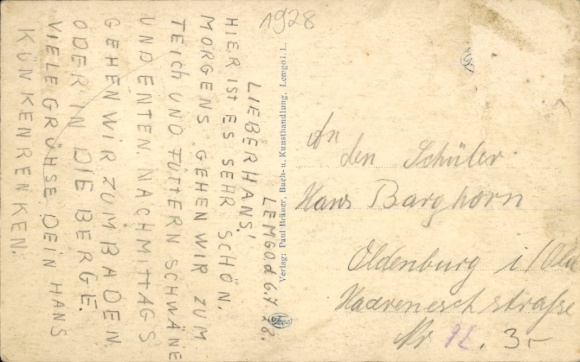 1928
LEMGO d 6.7.28.
LIEBER HANS!
HIER IST ES SEHR SCHÖN.
MORGENS GEHEN WIR ZUM
TEICH UND FÜTTERN SCHWÄNE
UND ENTEN. NACHMITTAGS
GEHEN WIR ZUM BADEN
ODER IN DIE BERGE.
VIELE GRÜHSE DEIN HANS
KÜNKENRENKEN.
Verlag: Paul Bräuer, Buch- u. Kunsthandlung, Lemgo i. L.
An
den Schüler
Hans Barghorn
Oldenburg i/Old
Haareneschstraße
Nr 12. 3-